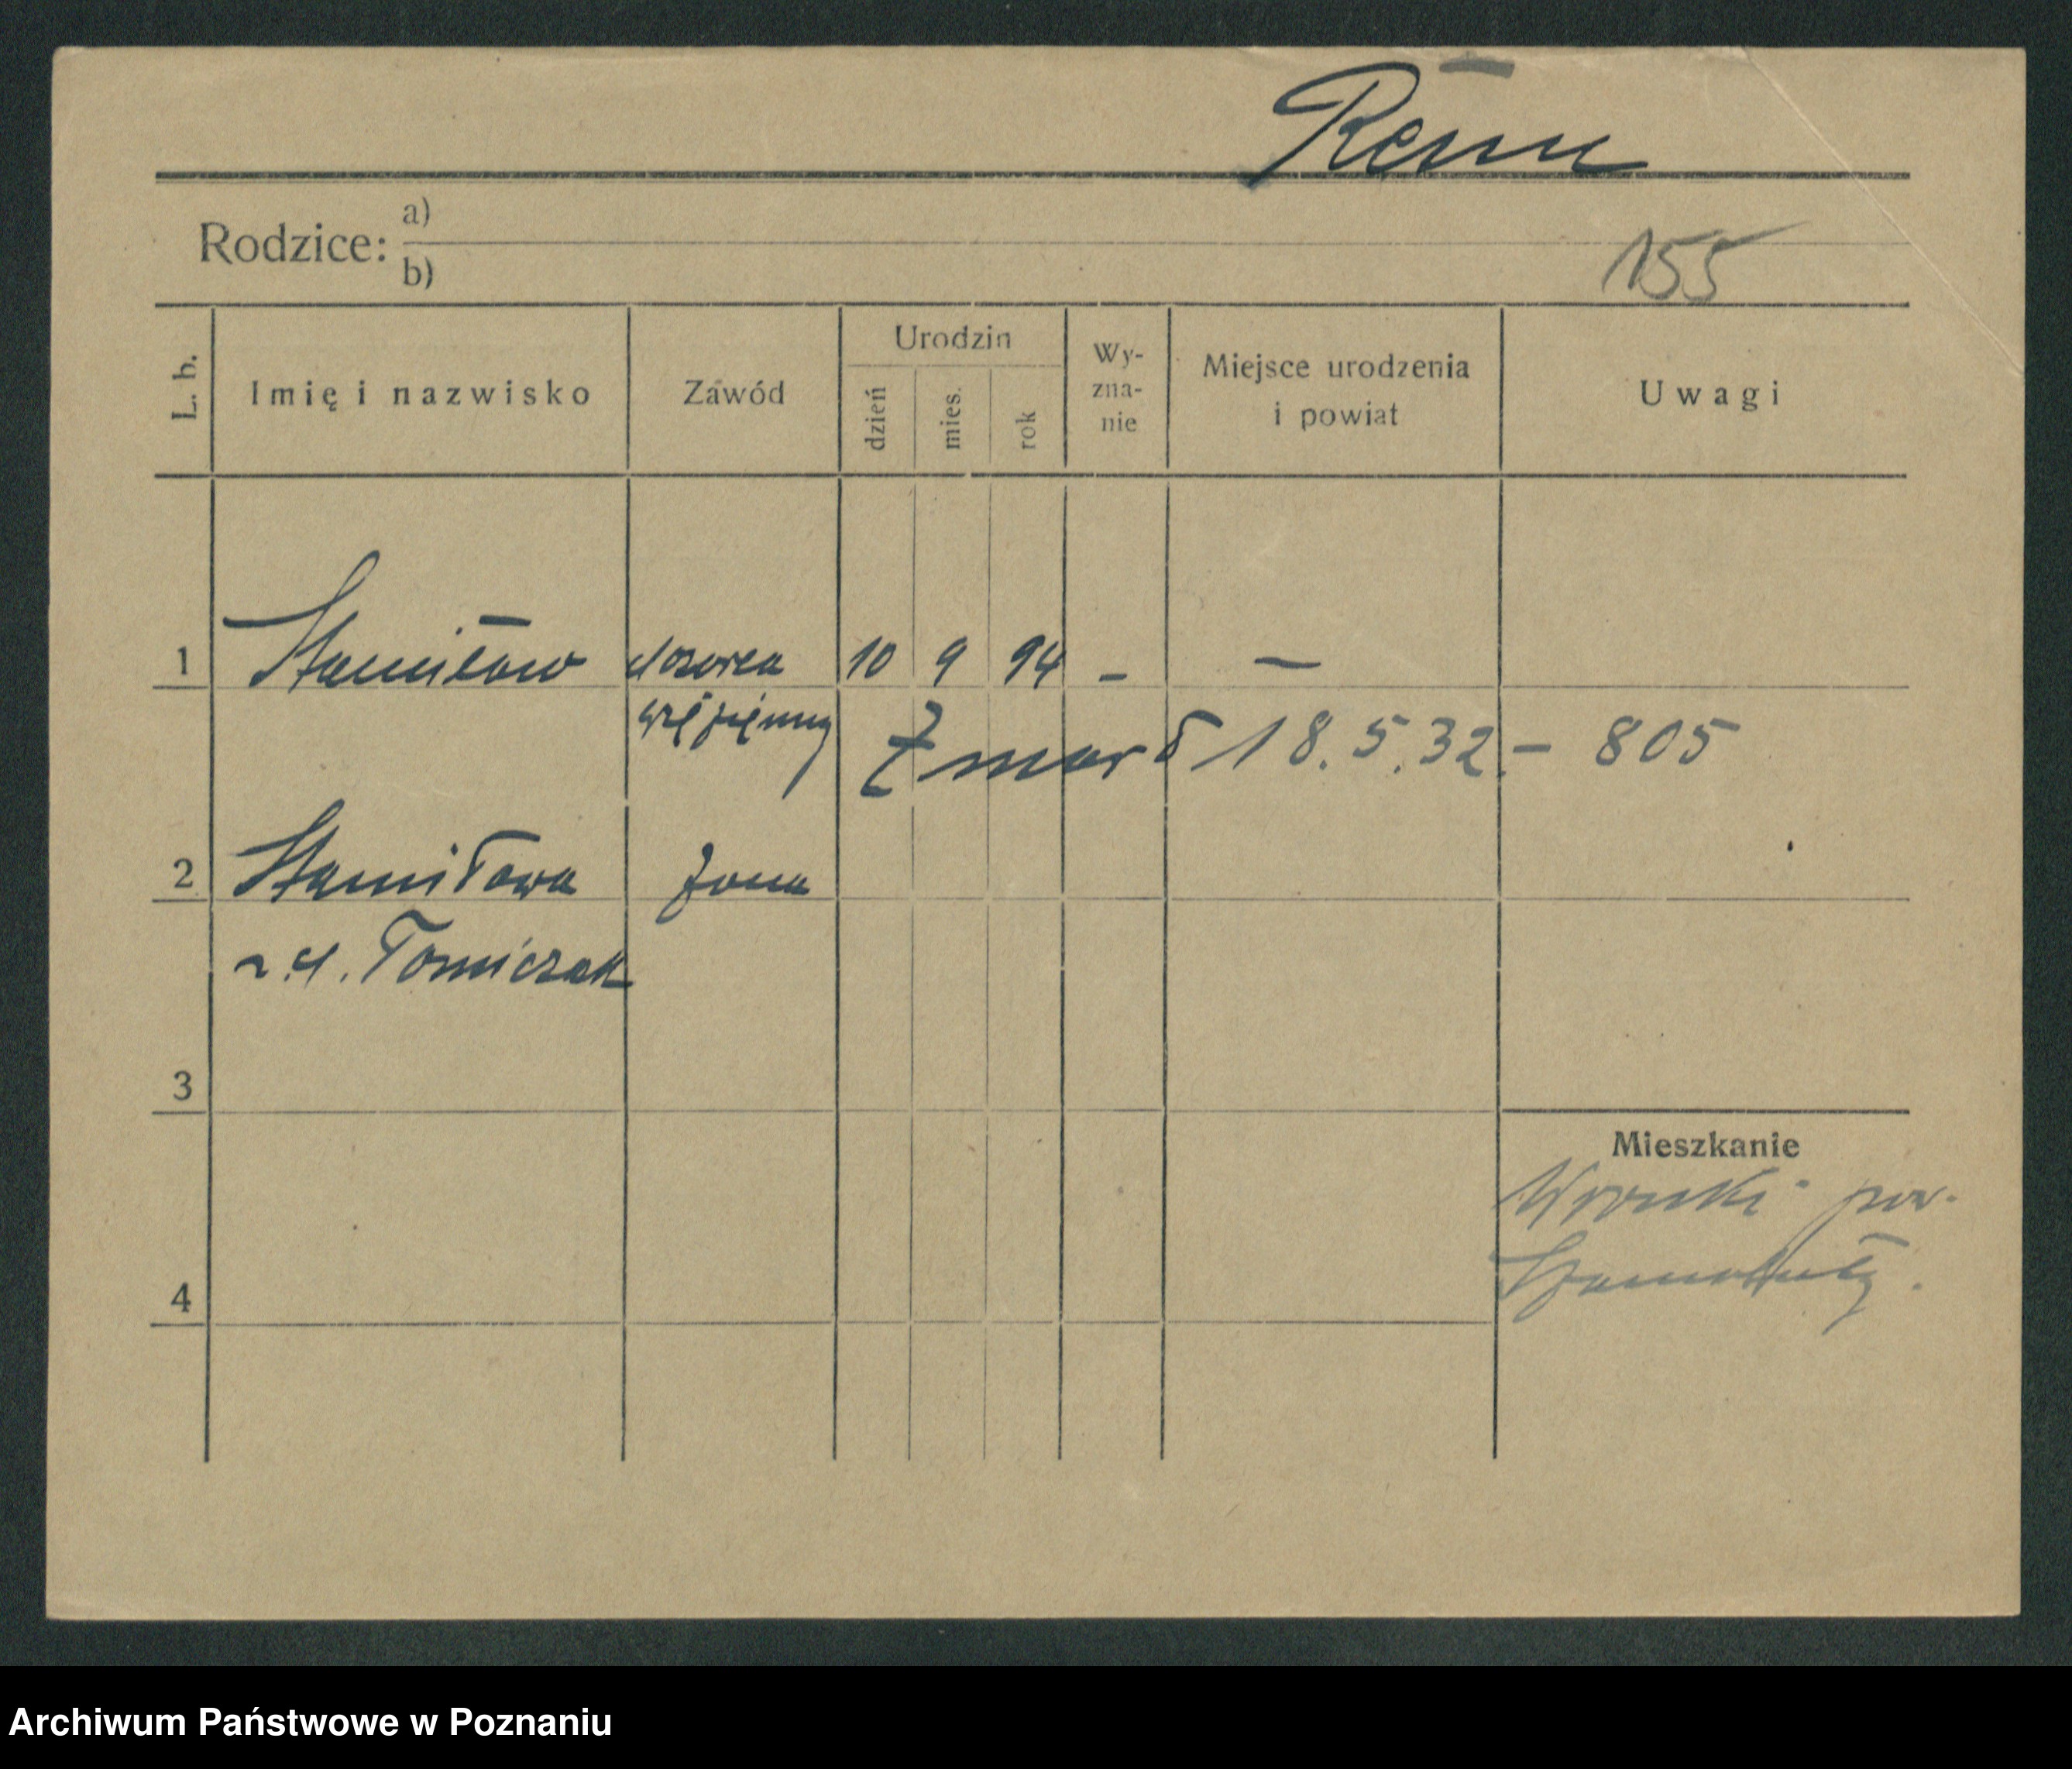 Renn
Rodzice: a)
b)
155
L. b.
Imię i nazwisko
Zawód
Urodzin
dzień
mies.
rok
Wy-
zna-
nie
Miejsce urodzenia
i powiat
Uwagi
1 Stanisław dozorca 10 9 94 – –
więzienny
Zmarł 18.5.32. – 805
2 Stanisława żona
z d. Tomiczak
3
Mieszkanie
Wronki pow.
Szamotuły.
4
Archiwum Państwowe w Poznaniu